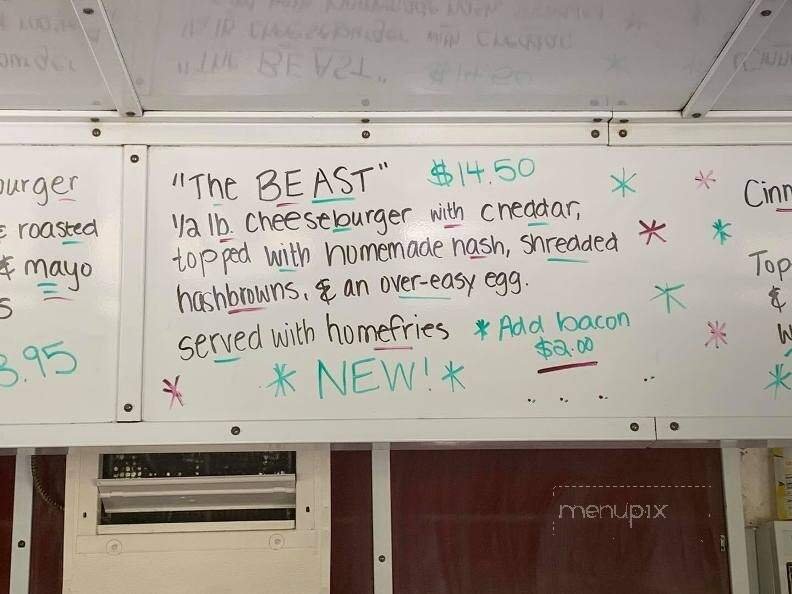 urger
& roasted
& mayo
s
3.95
"The BEAST" $14.50
1/2 lb. cheeseburger with cheddar,
topped with homemade hash, shredded
hashbrowns, & an over-easy egg.
served with homefries * Add bacon
$2.00
* NEW! *
Cinn
Top
&
w
menupix